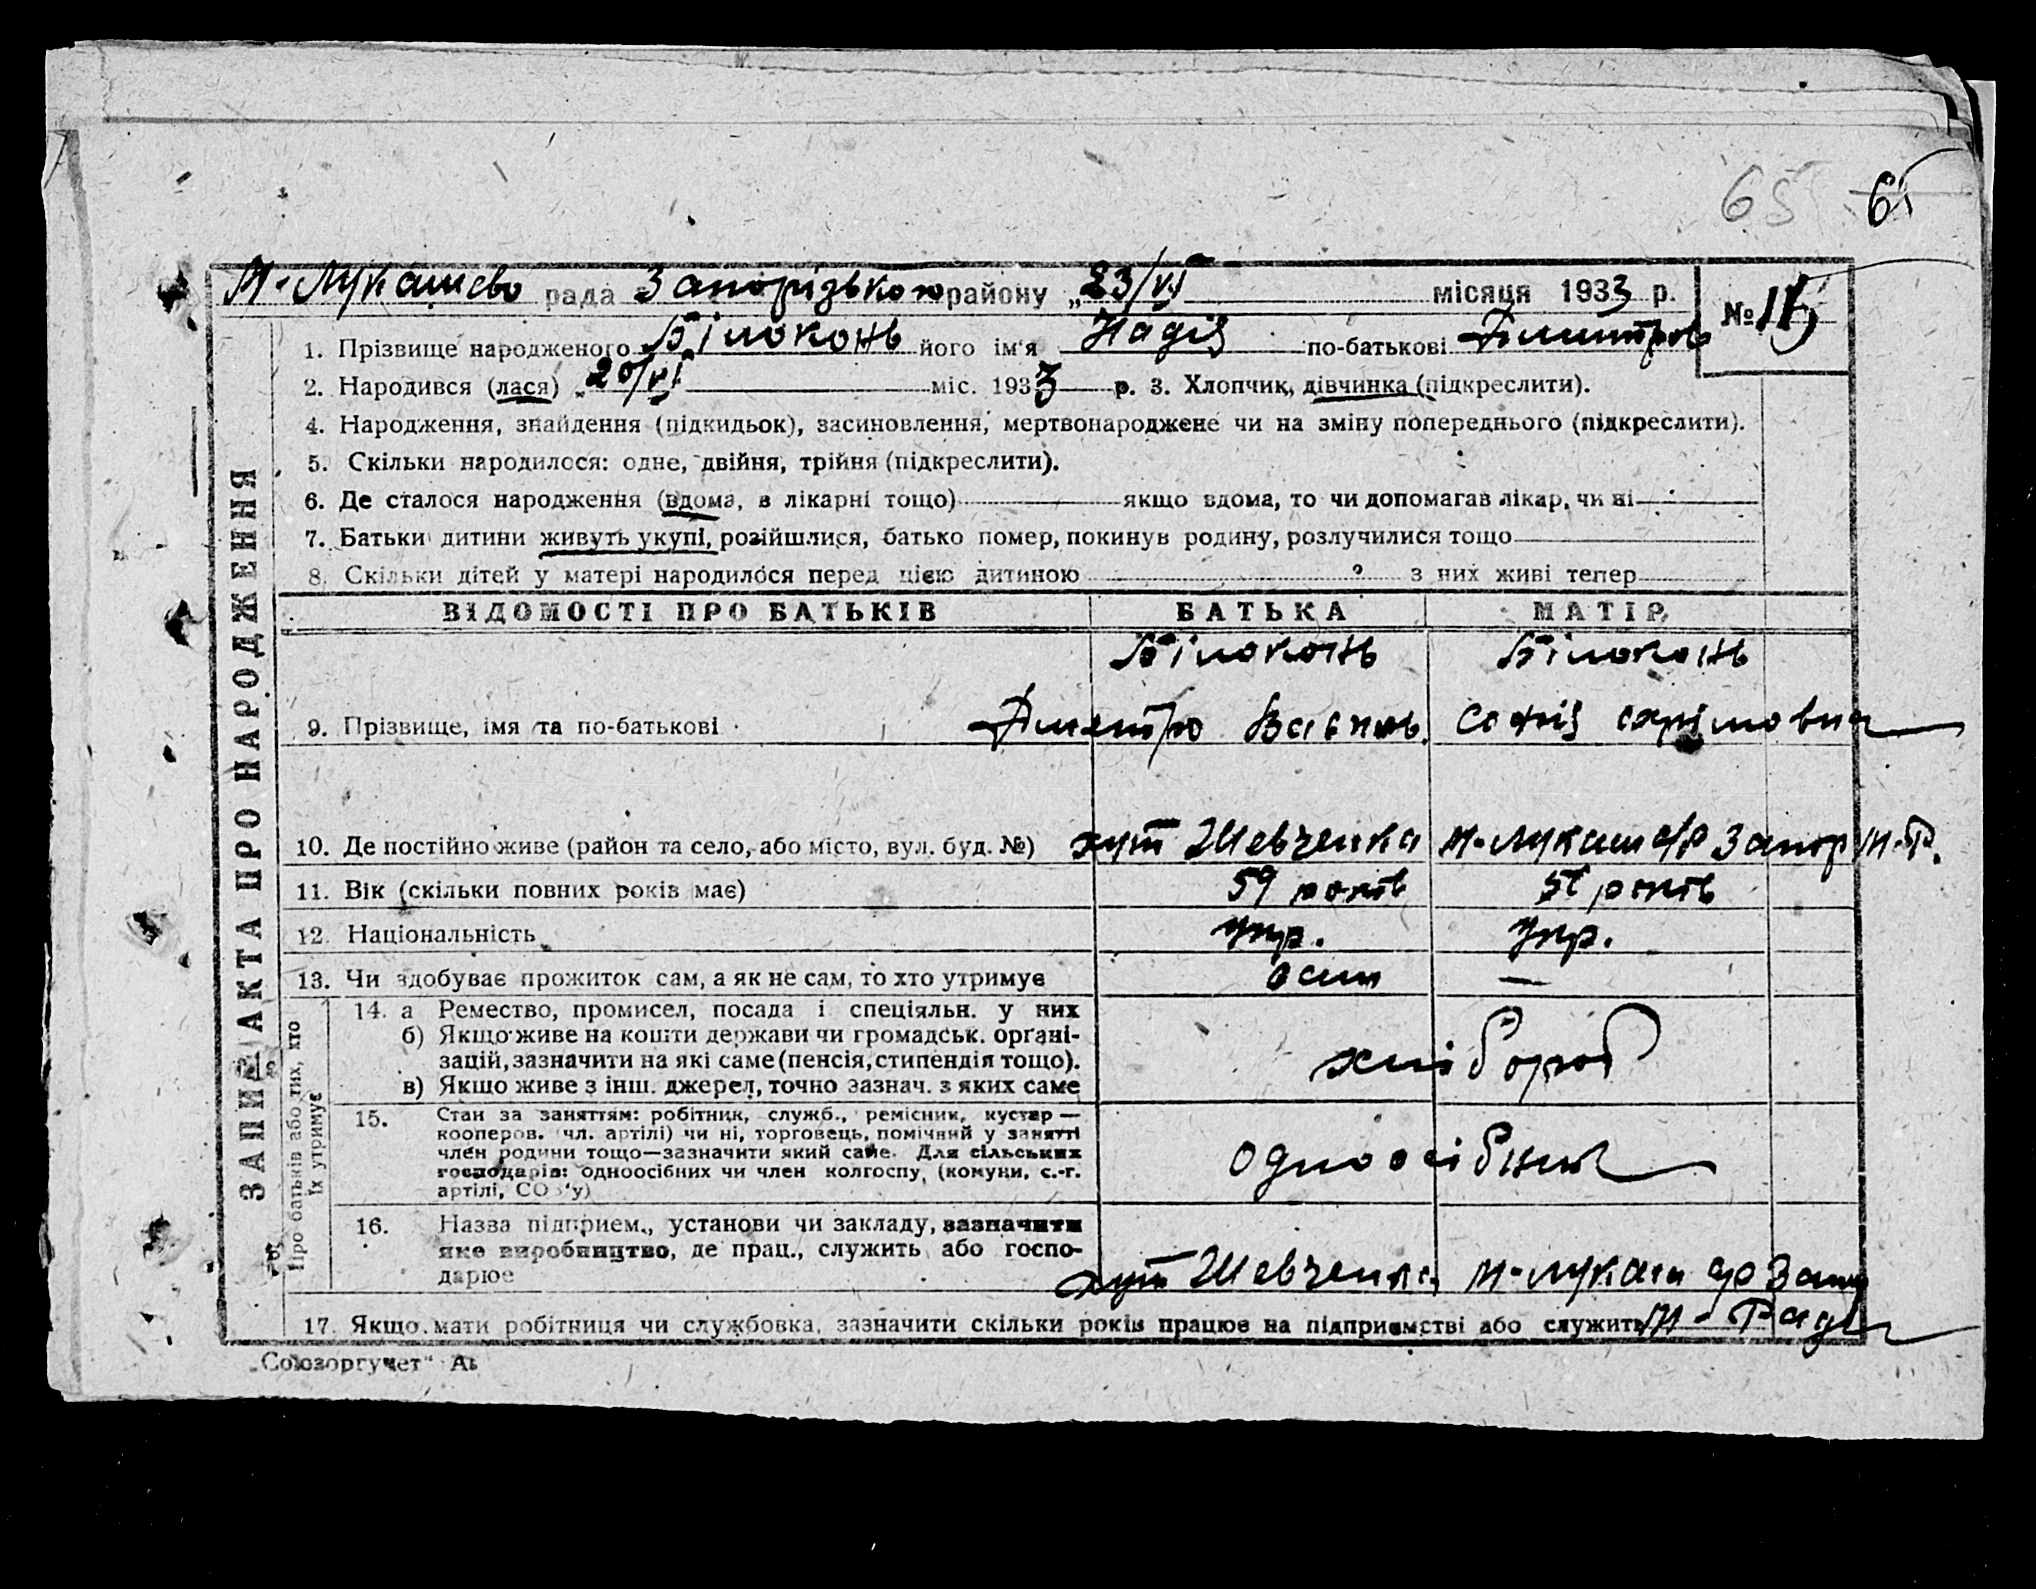 65 65
М-Лукашево рада Запорізького району „23/VI місяця 1933 р. №
1. Прізвище народженого Білоконь його ім'я Надія по-батькові Дмитров
2. Народився (лася) „20/VI міс. 1933 р. 3. Хлопчик, дівчинка (підкреслити).
4. Народження, знайдення (підкидьок), засиновлення, мертвонароджене чи на зміну попереднього (підкреслити).
5. Скільки народилося: одне, двійня, трійня (підкреслити).
6. Де сталося народження (вдома, в лікарні тощо) якщо вдома, то чи допомагав лікар, чи ні
7. Батьки дитини живуть укупі, розійшлися, батько помер, покинув родину, розлучилися тощо
8. Скільки дітей у матері народилося перед цією дитиною з них живі тепер
ЗАПИС АКТА ПРО НАРОДЖЕННЯ
ВІДОМОСТІ ПРО БАТЬКІВ БАТЬКА МАТІР
Білоконь Білоконь
9. Прізвище, імя та по-батькові Дмитро Софія
10. Де постійно живе (район та село, або місто, вул. буд. №) хут Шевченка М-Лукаш Запор М-Р.
11. Вік (скільки повних років має) 59 років років
12. Національність укр. укр.
13. Чи здобуває прожиток сам, а як не сам, то хто утримує сам —
Про батьків або тих, хто
їх утримує
14. а Ремество, промисел, посада і спеціяльн. у них
б) Якщо живе на кошти держави чи громадськ. органі-
зацій, зазначити на які саме (пенсія, стипендія тощо).
в) Якщо живе з інш. джерел, точно зазнач. з яких саме
хлібороб
15. Стан за заняттям: робітник, служб., ремісник, кустар —
кооперов. (чл. артілі) чи ні, торговець, помічний у занятті
член родини тощо—зазначити який саме. Для сільських
господарів: одноосібних чи член колгоспу, (комуни, с.-г.
артілі, СОЗ'у)
одноосібник
16. Назва підприєм., установи чи закладу, зазначити
яке виробництво, де прац., служить або госпо-
дарює
хут Шевченка М-Лукаш Запор
17. Якщо мати робітниця чи службовка, зазначити скільки років працює на підприємстві або служить М-Ради
„Союзоргучет"